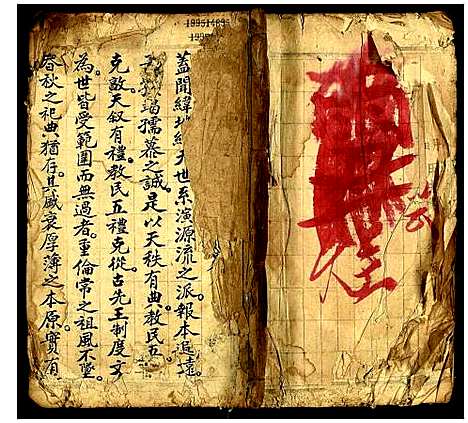 蓋聞緯地經天世系演源流之派。報本追遠。
竭孺慕之誠。是以天秩有典。教民五
克敦。天叙有禮。教民五禮克從。古先王制度文
為。世皆受範圍而無過者。重倫常之祖風不墜。
春秋之祀典猶存。其盛衰厚薄之本原。實有